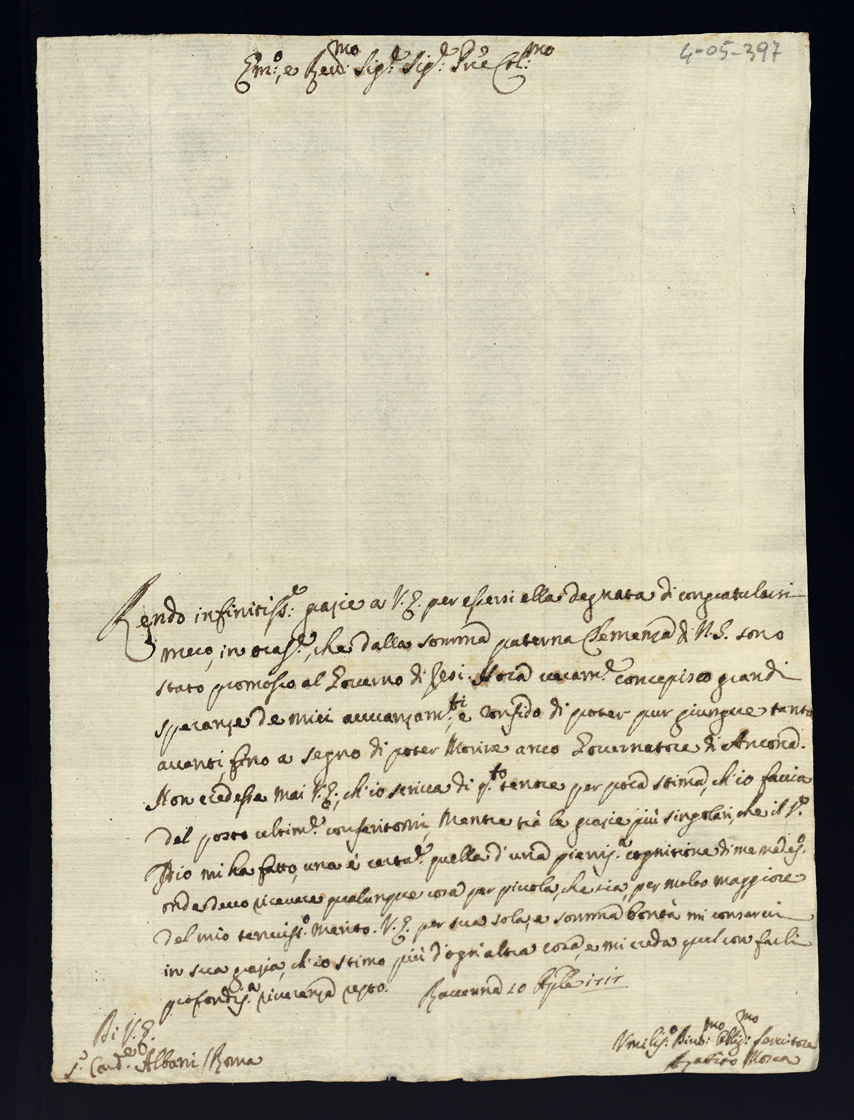 4-05-397
Em.o, e Reu.mo Sig.r Sig.r P.ne Col.mo
Rendo infinitiss.e grazie a V.E. per essersi ella degnata di congratularsi
meco, in ocas.e, che dalla somma paterna Clemenza di N.S. sono
stato promosso al Governo di Jesi. Hora veram.e concepisco grandi
speranze de miei auuanzam.ti, e confido di poter pur giungere tanto
auanti, fino a segno di poter Morire anco Governatore di Ancona.
Non credesse mai V.E., ch'io scriva di q.to tenore per poca stima, ch'io faccia
del posto ultim.e conferitomi, Mentre trà le grazie più singolari, che il S.r
Dio mi ha fatto, una è certa.e quella d'una pieniss.a cognitione di me medes.o
onde deuo riceuere qualunque cosa per picola, che sia, per molto maggiore
del mio tenuiss.o merito. V.E. per sua sola, e somma bontà mi conserui
in sua grazia, ch'io stimo più d'ogn'altra cosa, e mi creda qual con
profondiss.a riueranza resto. Rauenna 10
Di V.E.
S.r Card.e Albani / Roma
Vmiliss.o Diuo.mo Oblig.mo Seruitore
Mosca